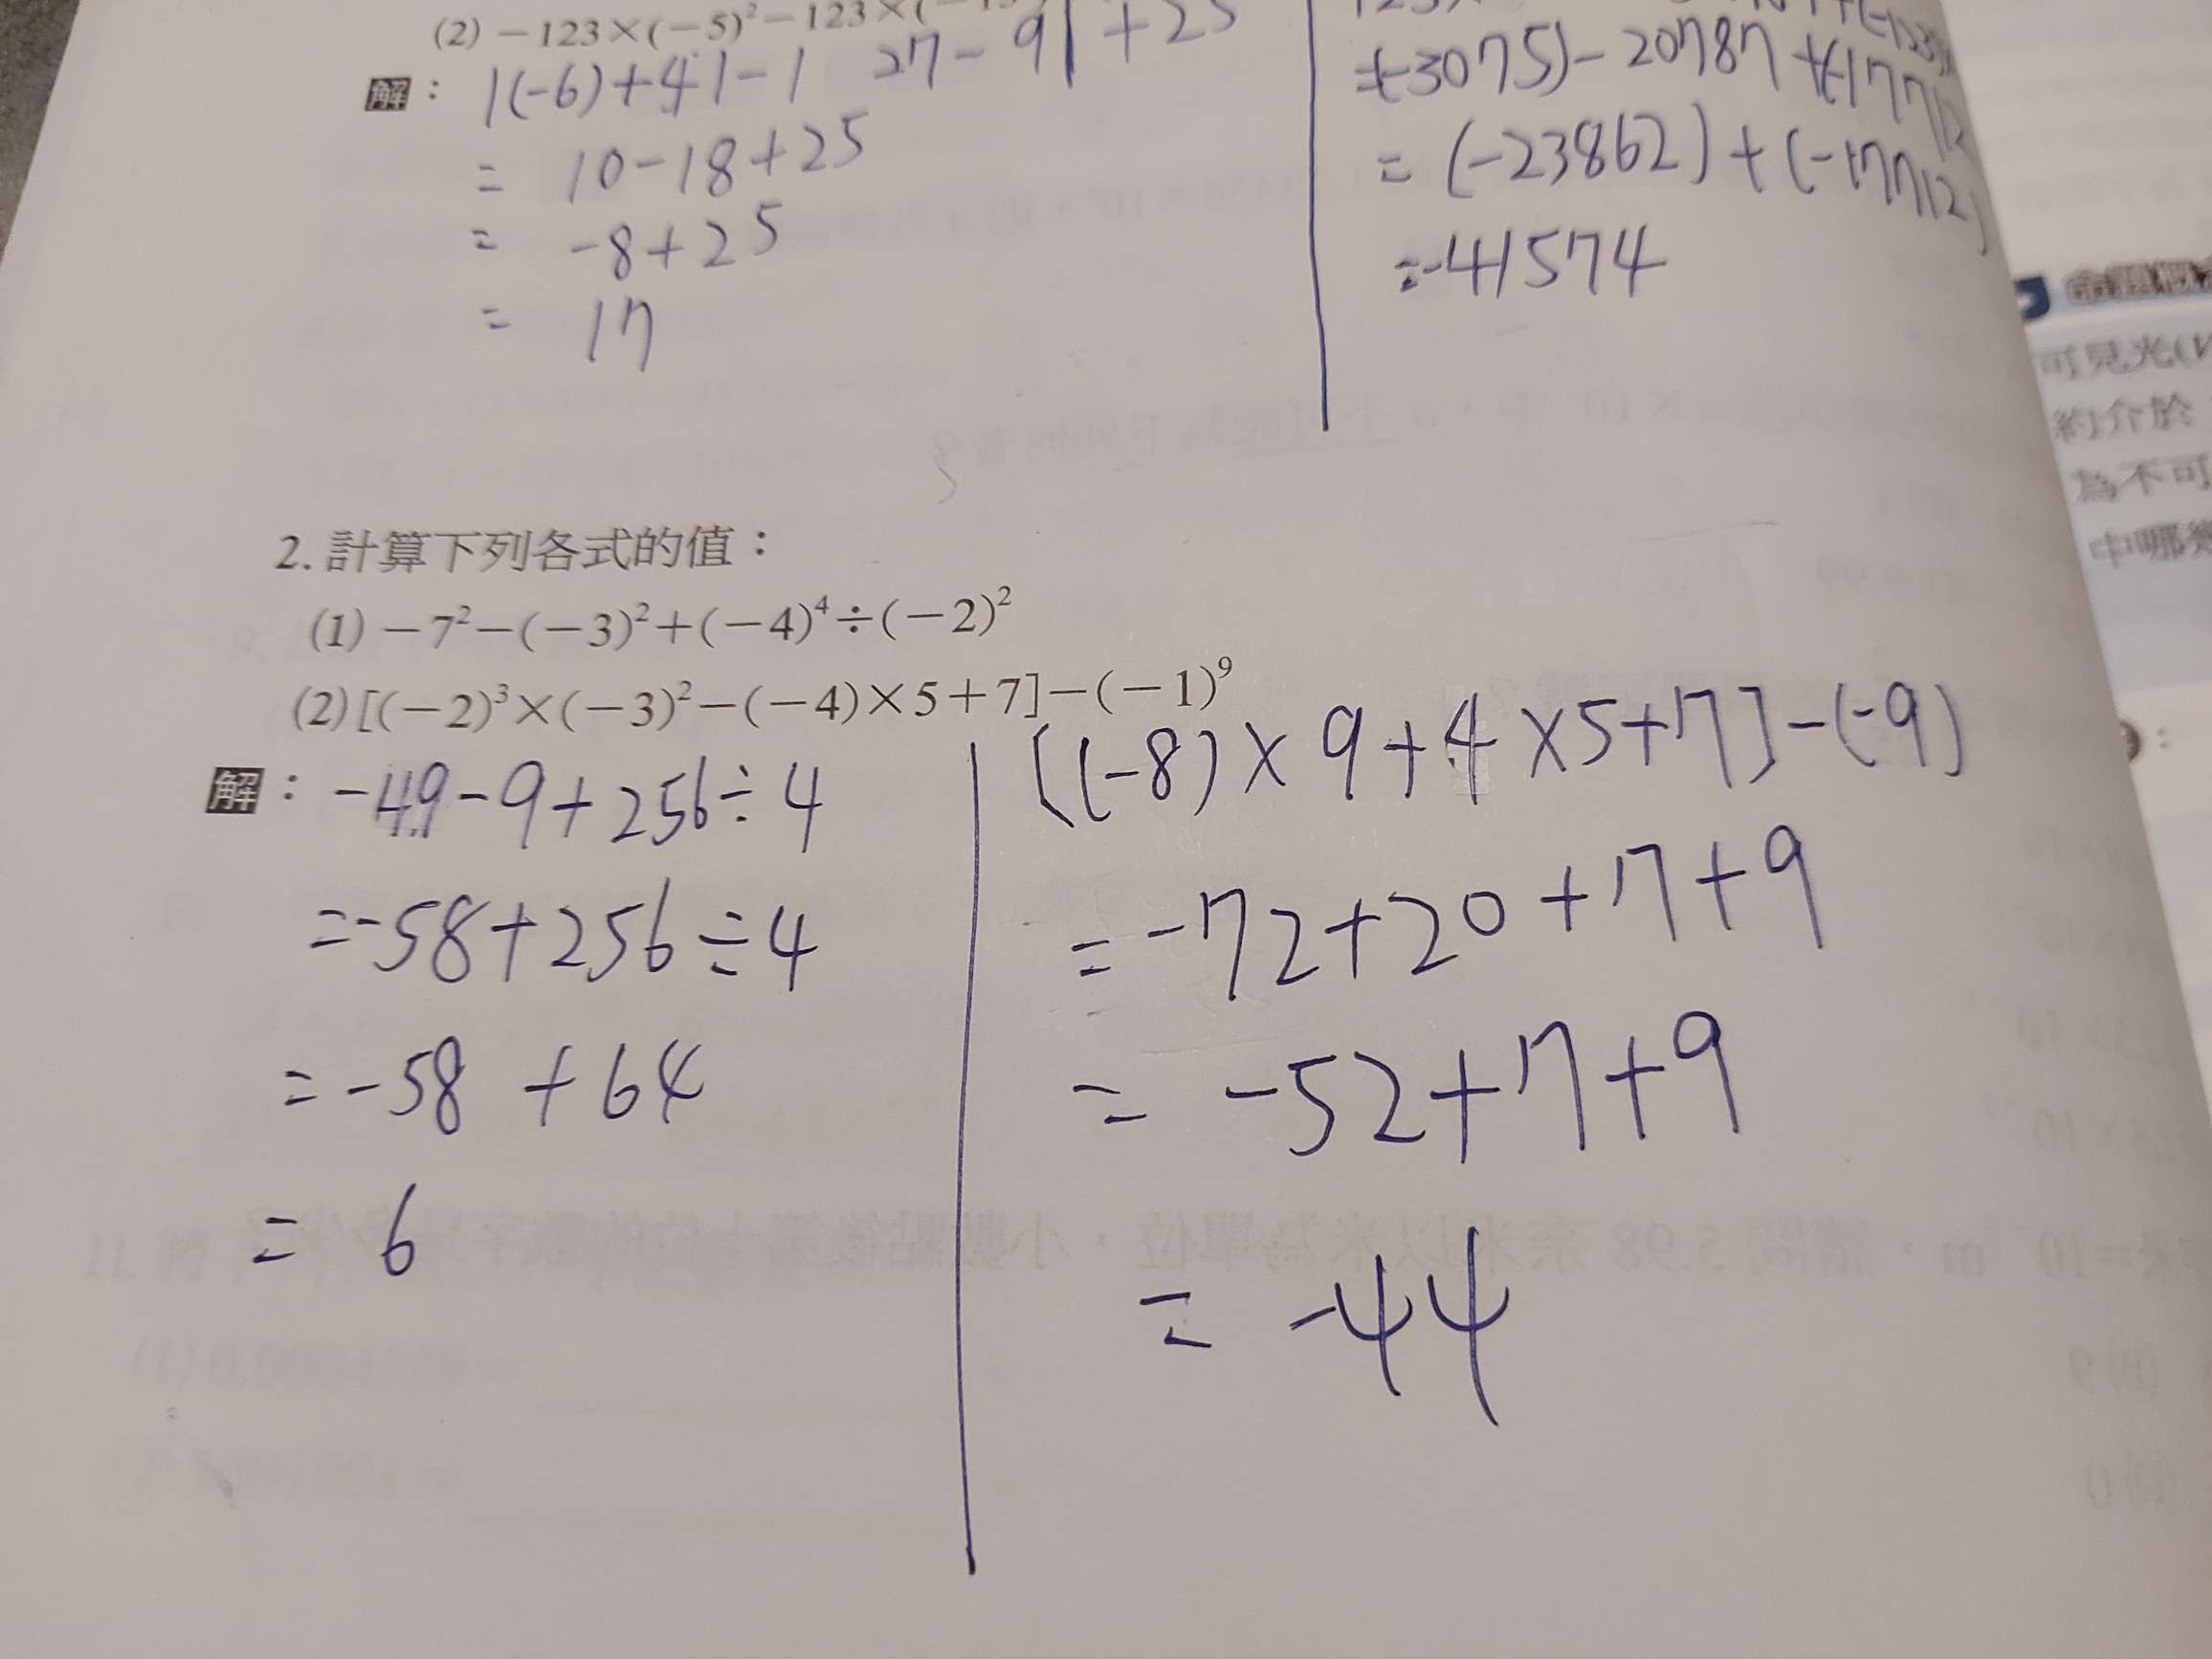 (2) －123×(－5)²－123×(－1
解：|(-6)+4|-|27-9|+25
= 10-18+25
= -8+25
= 17
=(-3075)-20787+(-17712
= (-23862)+(-17712)
=-41574
2. 計算下列各式的值：
(1) －7²－(－3)²＋(－4)⁴÷(－2)²
(2) [(－2)³×(－3)²－(－4)×5＋7]－(－1)⁹
解：-49-9+256÷4
=-58+256÷4
=-58 +64
= 6
[(-8)×9+4×5+7]-(-9)
=-72+20+7+9
= -52+7+9
= -44
可見光(
約介於
為不可
中哪